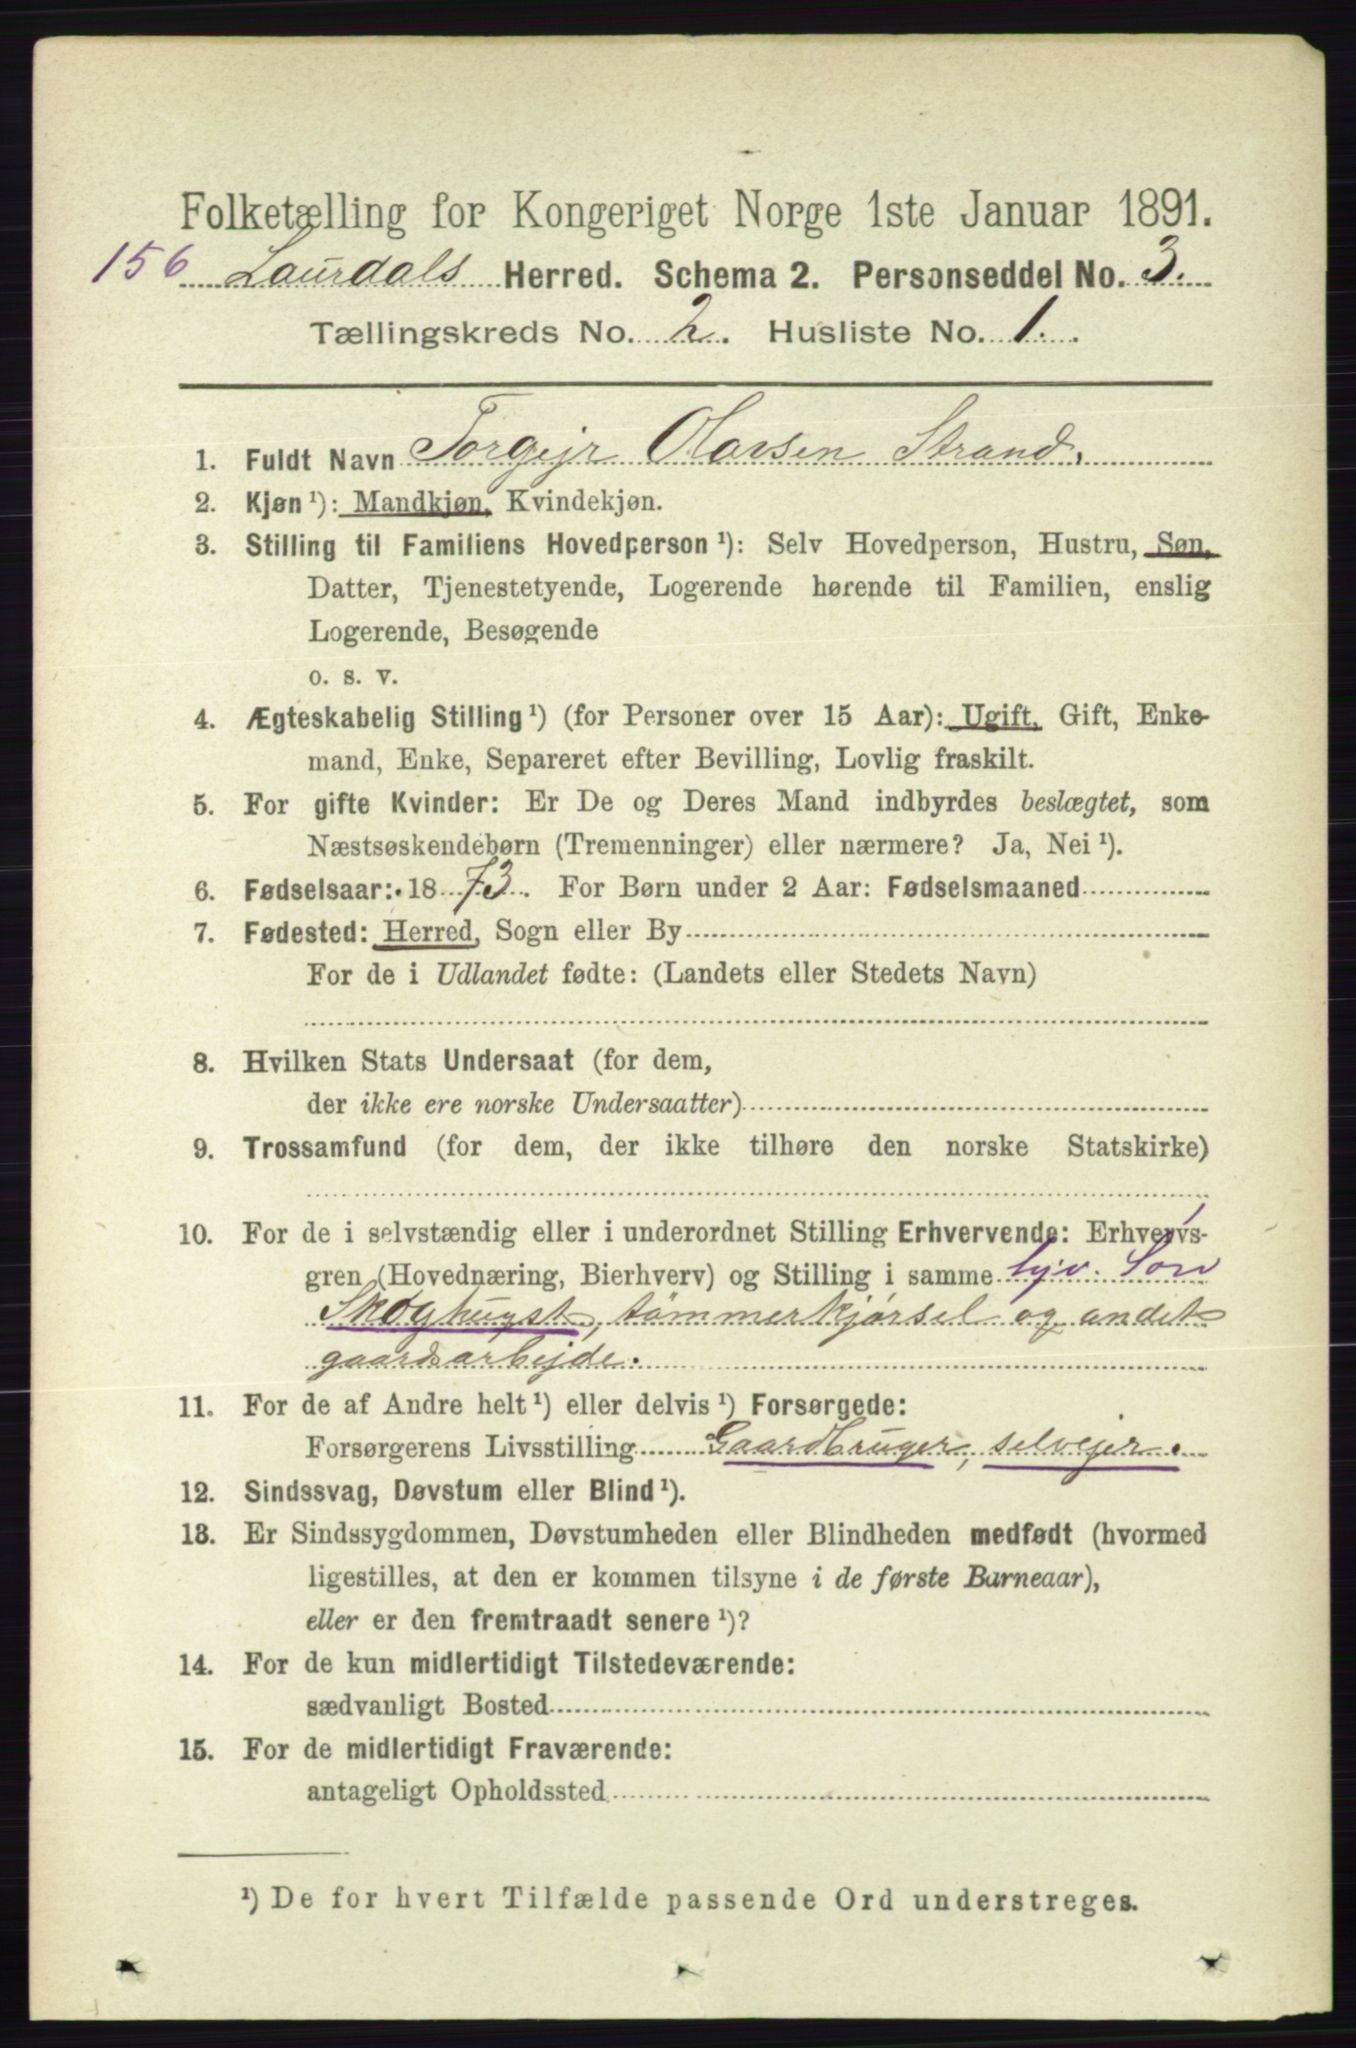 Folketælling for Kongeriget Norge 1ste Januar 1891.
156 Laurdals Herred. Schema 2. Personseddel No. 3.
Tællingskreds No. 2. Husliste No. 1.
1. Fuldt Navn Torgejr Olavsen Strand.
2. Kjøn ¹): Mandkjøn, Kvindekjøn.
3. Stilling til Familiens Hovedperson ¹): Selv Hovedperson, Hustru, Søn,
Datter, Tjenestetyende, Logerende hørende til Familien, enslig
Logerende, Besøgende
o. s. v.
4. Ægteskabelig Stilling ¹) (for Personer over 15 Aar): Ugift, Gift, Enke-
mand, Enke, Separeret efter Bevilling, Lovlig fraskilt.
5. For gifte Kvinder: Er De og Deres Mand indbyrdes beslægtet, som
Næstsøskendebørn (Tremenninger) eller nærmere? Ja, Nei ¹).
6. Fødselsaar: 1873. For Børn under 2 Aar: Fødselsmaaned
7. Fødested: Herred, Sogn eller By
For de i Udlandet fødte: (Landets eller Stedets Navn)
8. Hvilken Stats Undersaat (for dem,
der ikke ere norske Undersaatter)
9. Trossamfund (for dem, der ikke tilhøre den norske Statskirke)
10. For de i selvstændig eller i underordnet Stilling Erhvervende: Erhvervs-
gren (Hovednæring, Bierhverv) og Stilling i samme hjv. Søn
Skoghugst, tømmerkjørsel og andet
gaardsarbejde.
11. For de af Andre helt ¹) eller delvis ¹) Forsørgede:
Forsørgerens Livsstilling Gaardbruger, selvejer.
12. Sindssvag, Døvstum eller Blind ¹).
13. Er Sindssygdommen, Døvstumheden eller Blindheden medfødt (hvormed
ligestilles, at den er kommen tilsyne i de første Barneaar),
eller er den fremtraadt senere ¹)?
14. For de kun midlertidigt Tilstedeværende:
sædvanligt Bosted
15. For de midlertidigt Fraværende:
antageligt Opholdssted
¹) De for hvert Tilfælde passende Ord understreges.